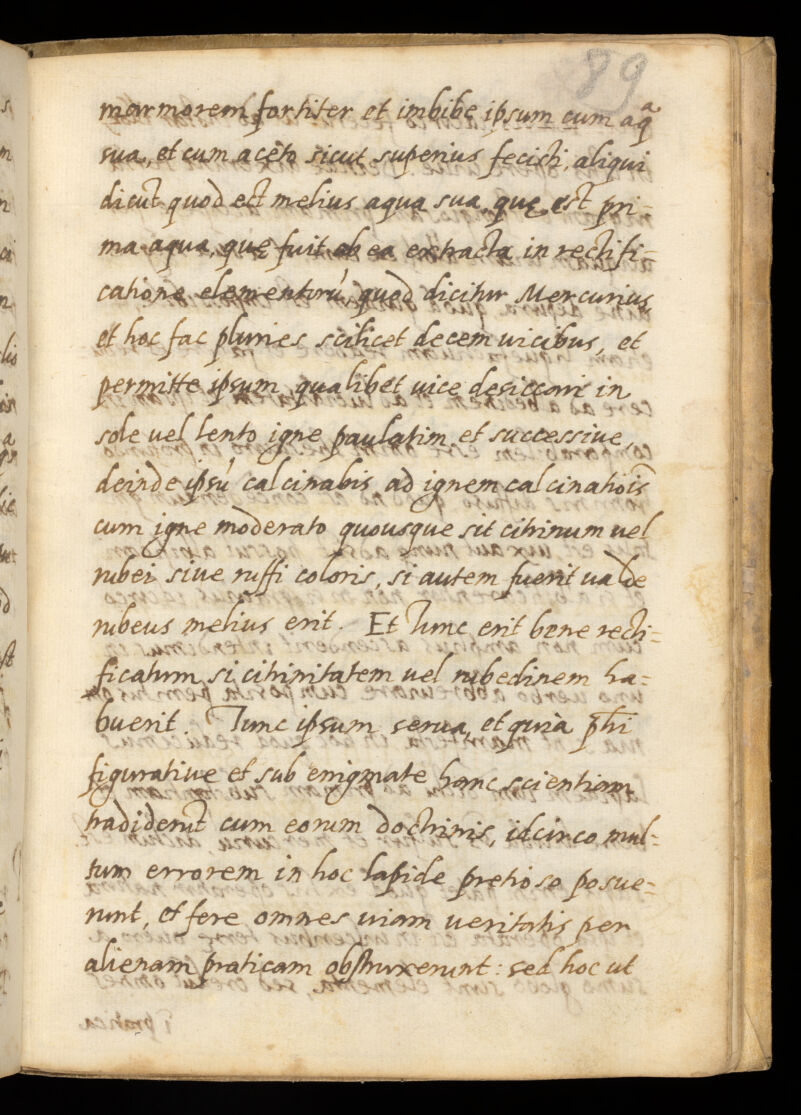 89
marmorem fortiter et imbibe ipsum cum aq̃ᵃ
sua, et cum aceto sicut superius fecisti, aliqui
dicũt quod est melius aqua sua, quę est pri-
ma aqua, quę fuit ab ea extracta in rectifi-
catione elementorũ, quod dicitur Mercurius,
et hoc fac pluries scilicet decem uicibus, et
permitte ipsum qualibet uice desiccari in
sole uel lento igne paulatim et successiue,
deinde ipsũ calcinabis ad ignem calcinatiõis
cum igne moderato quousque sit citrinum uel
rubei siue ruffi coloris, si autem fuerit ualde
rubeus melius erit. Et Tunc erit bene recti=
ficatum si citrinitatem uel rubedinem ha=
buerit. Tunc ipsum serua, et quia phĩ
figuratiue et sub enigmate hanc scientiam
tradiderũt cum eorum doctrinis, idcirco mul=
tum errorem in hoc lapide pretioso posue=
runt, et fere omnes uiam ueritatis per
alienam praticam obstruxerunt: sed hoc ut